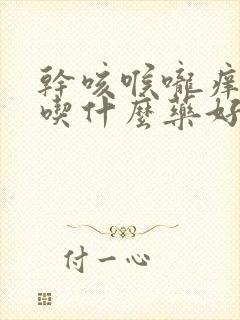 幹咳喉嚨癢
喫什麼藥好
付一心